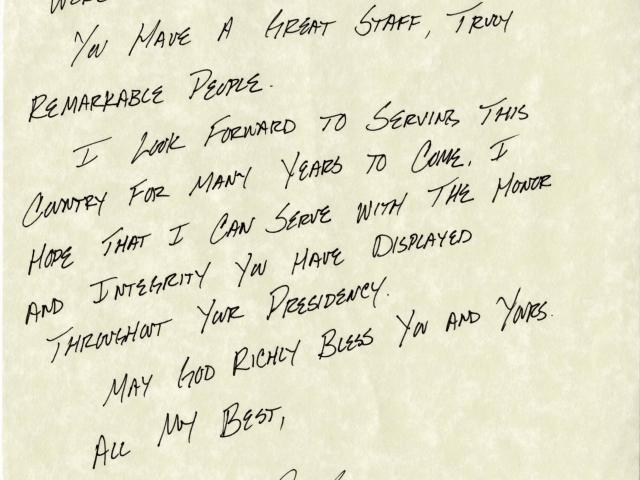 You Have A Great Staff, Truly
Remarkable People.
I Look Forward To Serving This
Country For Many Years To Come. I
Hope That I Can Serve With The Honor
And Integrity You Have Displayed
Throughout Your Presidency.
May God Richly Bless You And Yours.
All My Best,